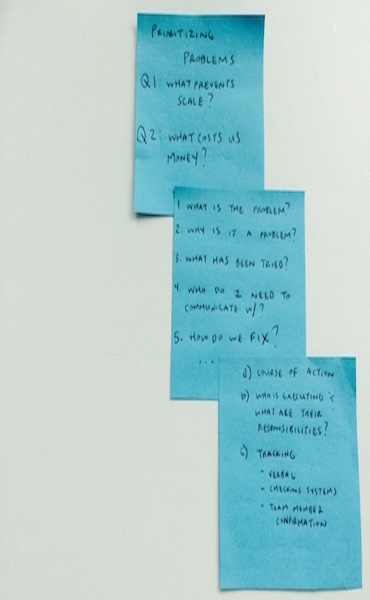 PRIORITIZING
PROBLEMS
Q1: WHAT PREVENTS
SCALE?
Q2: WHAT COSTS US
MONEY?
1. WHAT IS THE PROBLEM?
2. WHY IS IT A PROBLEM?
3. WHAT HAS BEEN TRIED?
4. WHO DO I NEED TO
COMMUNICATE W/?
5. HOW DO WE FIX?
...
a) COURSE OF ACTION
b) WHO IS EXECUTING &
WHAT ARE THEIR
RESPONSIBILITIES?
c) TRACKING
- VERBAL
- CHECKING SYSTEMS
- TEAM MEMBER
CONFIRMATION